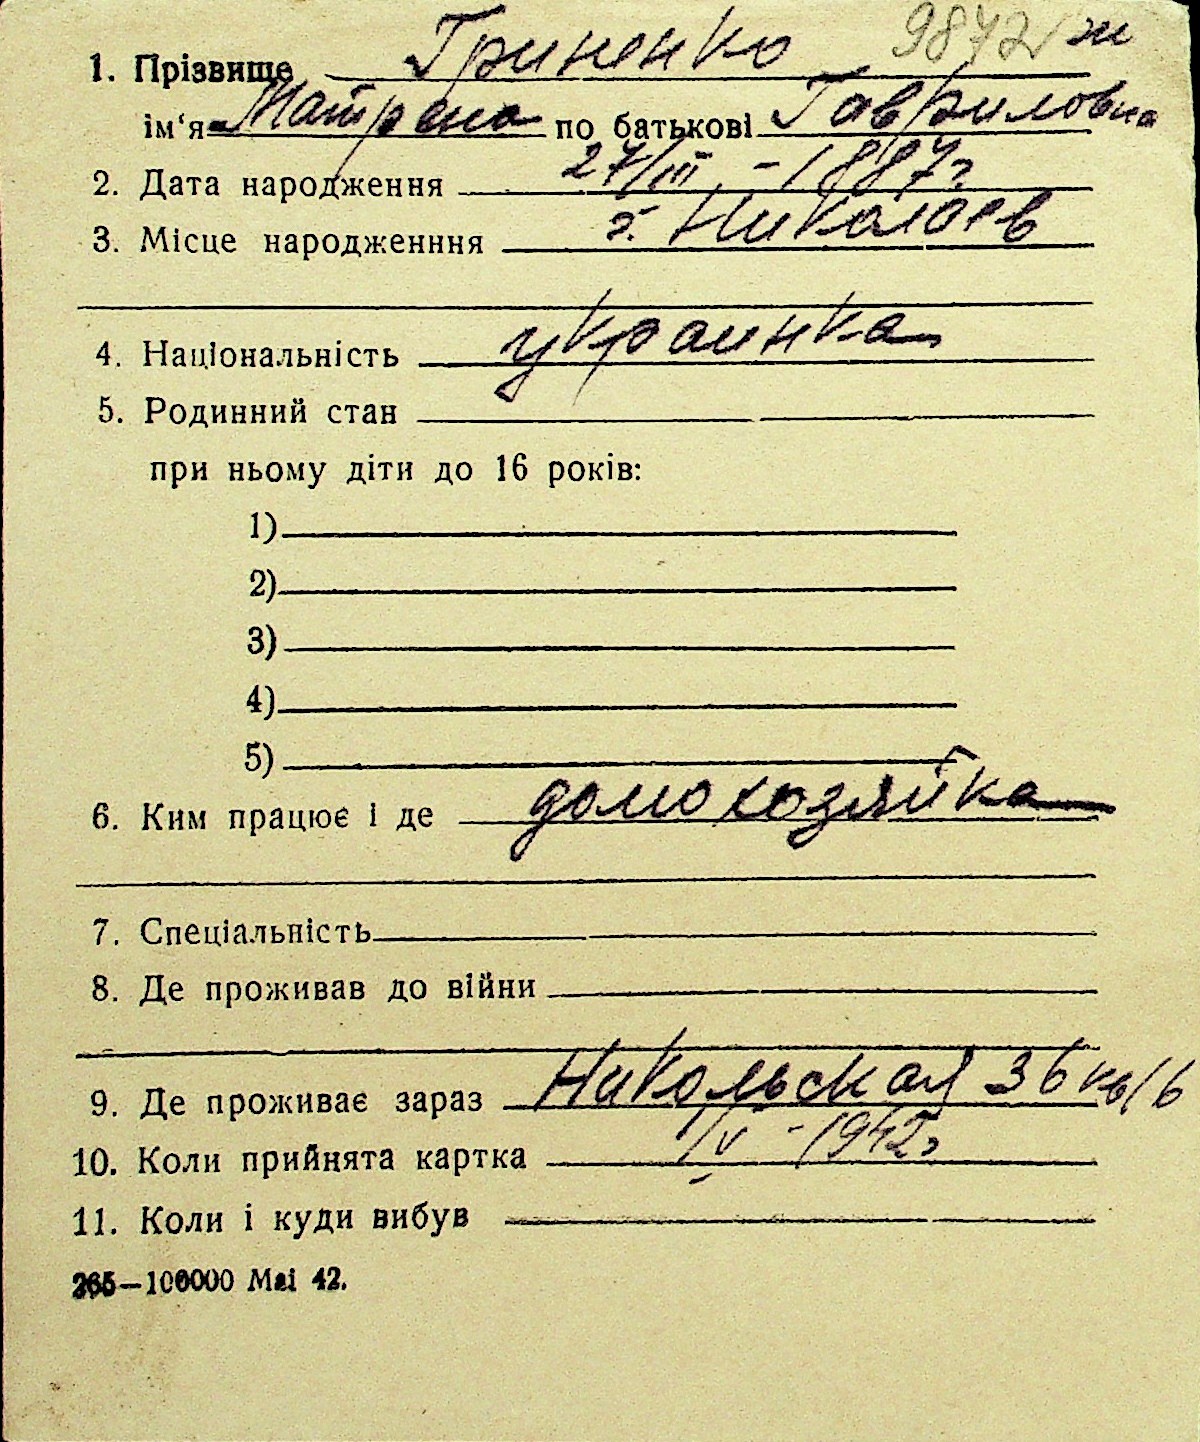 9872 ж
1. Прізвище Гриненко
ім'я Матрена по батькові Гавриловна
2. Дата народження 27/III - 1887 г
3. Місце народженння г. Николаев
4. Національність украинка
5. Родинний стан
при ньому діти до 16 років:
1)
2)
3)
4)
5)
6. Ким працює і де домохозяйка
7. Спеціальність
8. Де проживав до війни
9. Де проживає зараз Никольская 36 кв/6
10. Коли прийнята картка IV - 1942 г
11. Коли і куди вибув
265—100000 Маі 42.